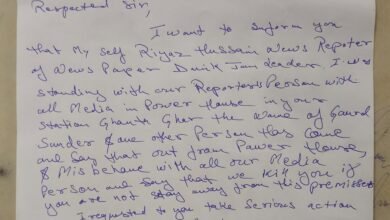 Respected Sir,
I want to inform you
that My self Riyaz Hussain News Repoter
of News Paper Dainik Jan Leader. I was
standing with our Reporters Person with
all Media in Power House in your
Station Ghanta Ghar the name of Gaurd
Sunder & one other Person has Came
and Say that out from Pawer House,
& Misbehave with all our Media
Person and Say that we Kill you if
you are not stay away from this premises
I requested to you take Serious action